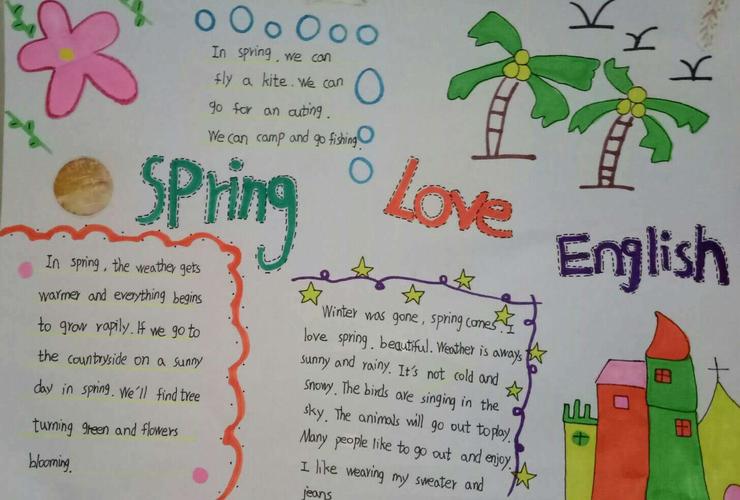 In spring, we can
fly a kite. We can
go for an outing.
We can camp and go fishing.
Spring
Love
English
In spring, the weather gets
warmer and everything begins
to grow rapily. If we go to
the countryside on a sunny
day in spring. We'll find tree
turning green and flowers
blooming.
Winter was gone, spring comes. I
love spring. beautiful. Weather is aways
sunny and rainy. It's not cold and
snowy. The birds are singing in the
sky. The animals will go out to play.
Many people like to go out and enjoy
I like wearing my sweater and
jeans